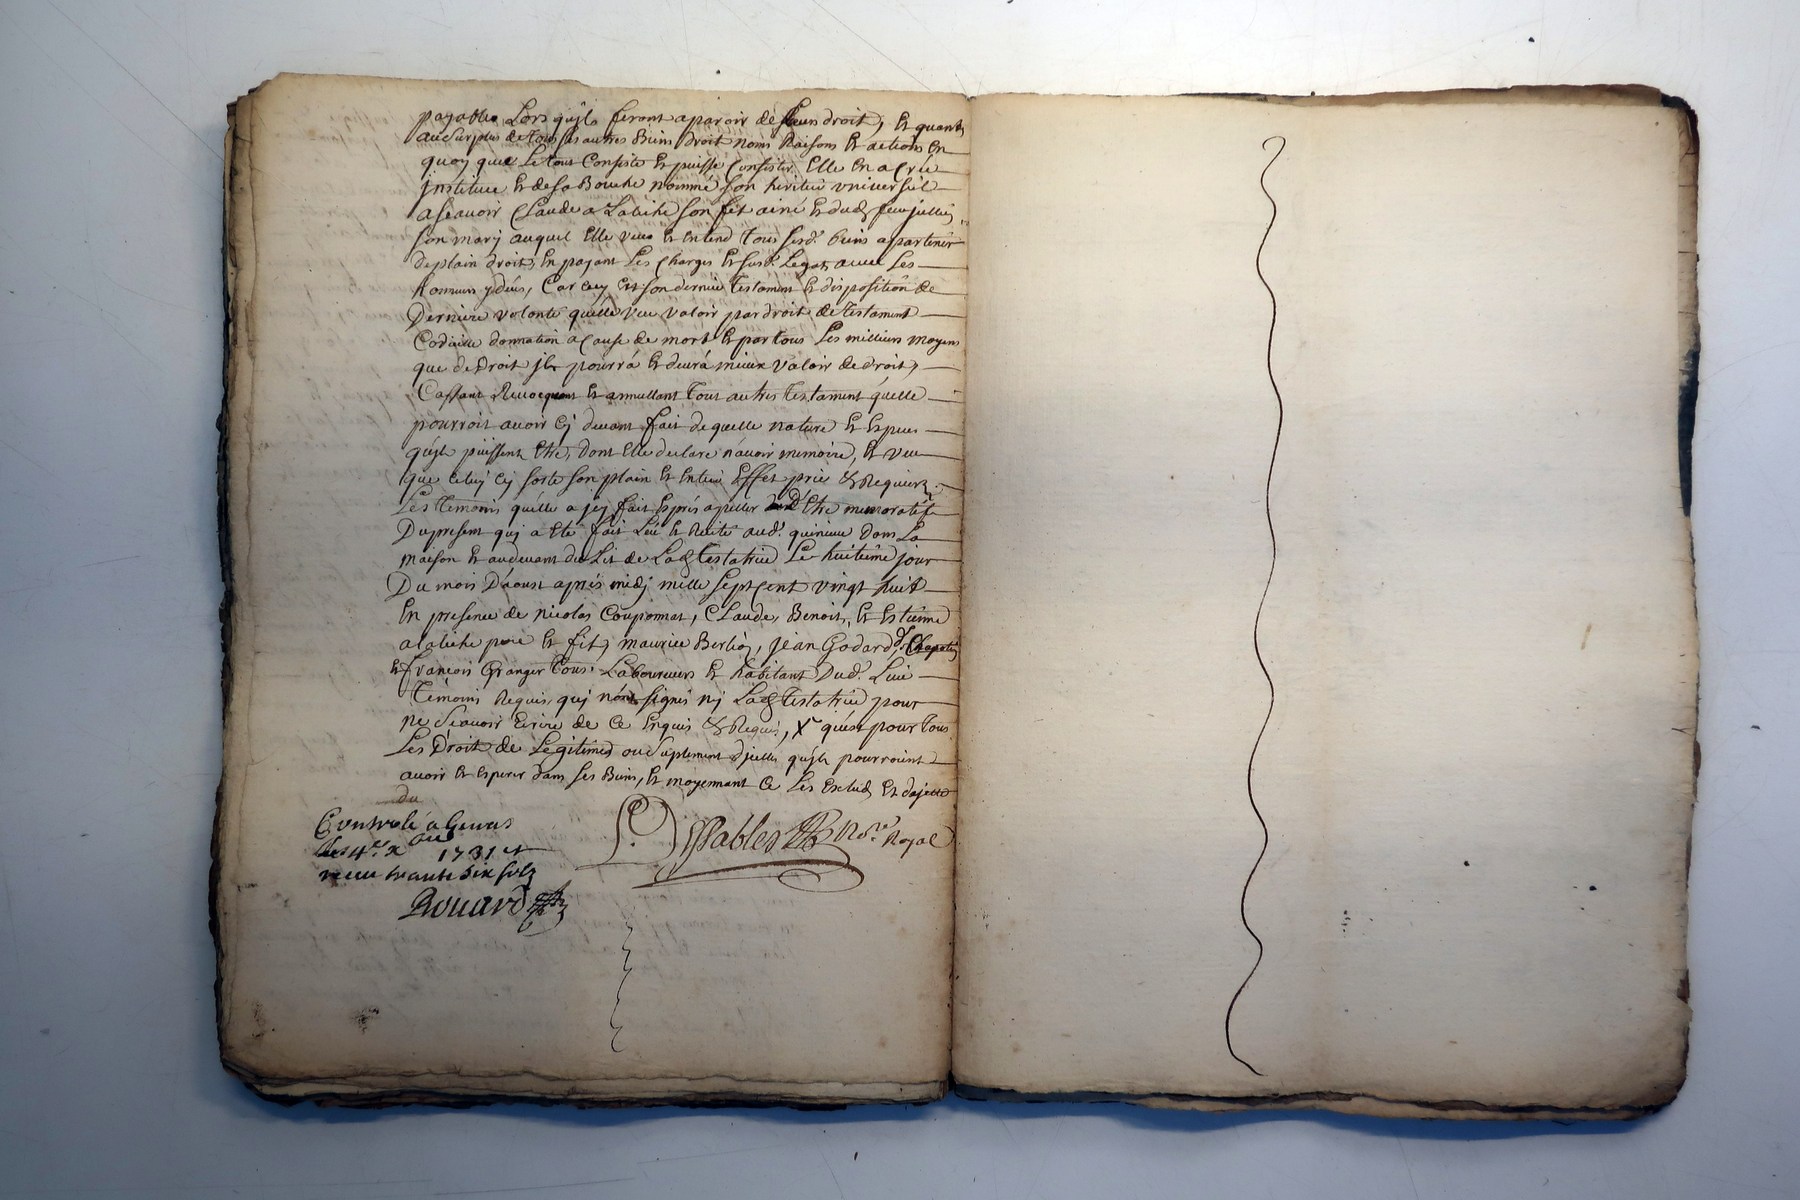 payables Lors qu'jls feront aparoir de Leurs droit, Et quant
au Surplus de tous ses autres Biens Droit noms Raisons Et actions En
quoy que Le tout Consiste Et puisse Consister Elle En a Crée
jnstitue Et de sa Bouche nommé son heritier universèl
a Scavoir Claude a Labiche son fils ainé Et dud. feu jullien
son mary auquel Elle veut Et Entend Tous sesd. biens apartenir
de plain droit, En payant Les Charges Et susd. Legats avec Les
honneurs Car cecy Est son dernier Testament Et disposition de
Derniere volonté quélle veu valoir par droit de Testament
Codicille donnation a Cause de mort Et par tous Les meillieurs moyens
que de Droit jls pourrá Et devrá mieux valoir de droit,
Cassant Revocquant Et annullant Tout autres Testament quélle
pourroit avoir Cy devant fait de quelle nature Et Espece
qu'jls puissent Etre, dont Elle declare n'avoir memoire, Et veu
que Celuy Cy sorte son plain Et Entier Effet priés & Requierz
Les Temoins quélle a jcy fait Exprés apeller d'Etre memoratifs
Du present quj a Eté fait Leu Et Recité aud. quincieu dans La
maison Et audevant du Lit de Lad. testatrice Le huitieme jour
Du mois D'áoust aprés midj mille Sept Cent vingt huit
En presence de nicolas Couponnat, Claude, Benoit, Et Estienne
a labiche pere Et fils, maurice Berlioz, jean Godard d. Chapotin
Et françois Granger Tous Laboureurs Et habitant Dud. Lieu
Témoins Requis quj nónt signés nj Lad. Testatrice pour
ne Scavoir Ecrire de Ce Enquis & Requis, X quést pour Tous
Les Droit de Légitimes ou Suplement djcelles qu'jls pourroient
avoir Et Esperer dans ses Biens, Et moyennant Ce Les Exclud Et dejette
du
Controlé a
1731
receu trante six sols
Not.re Royal
Rouard